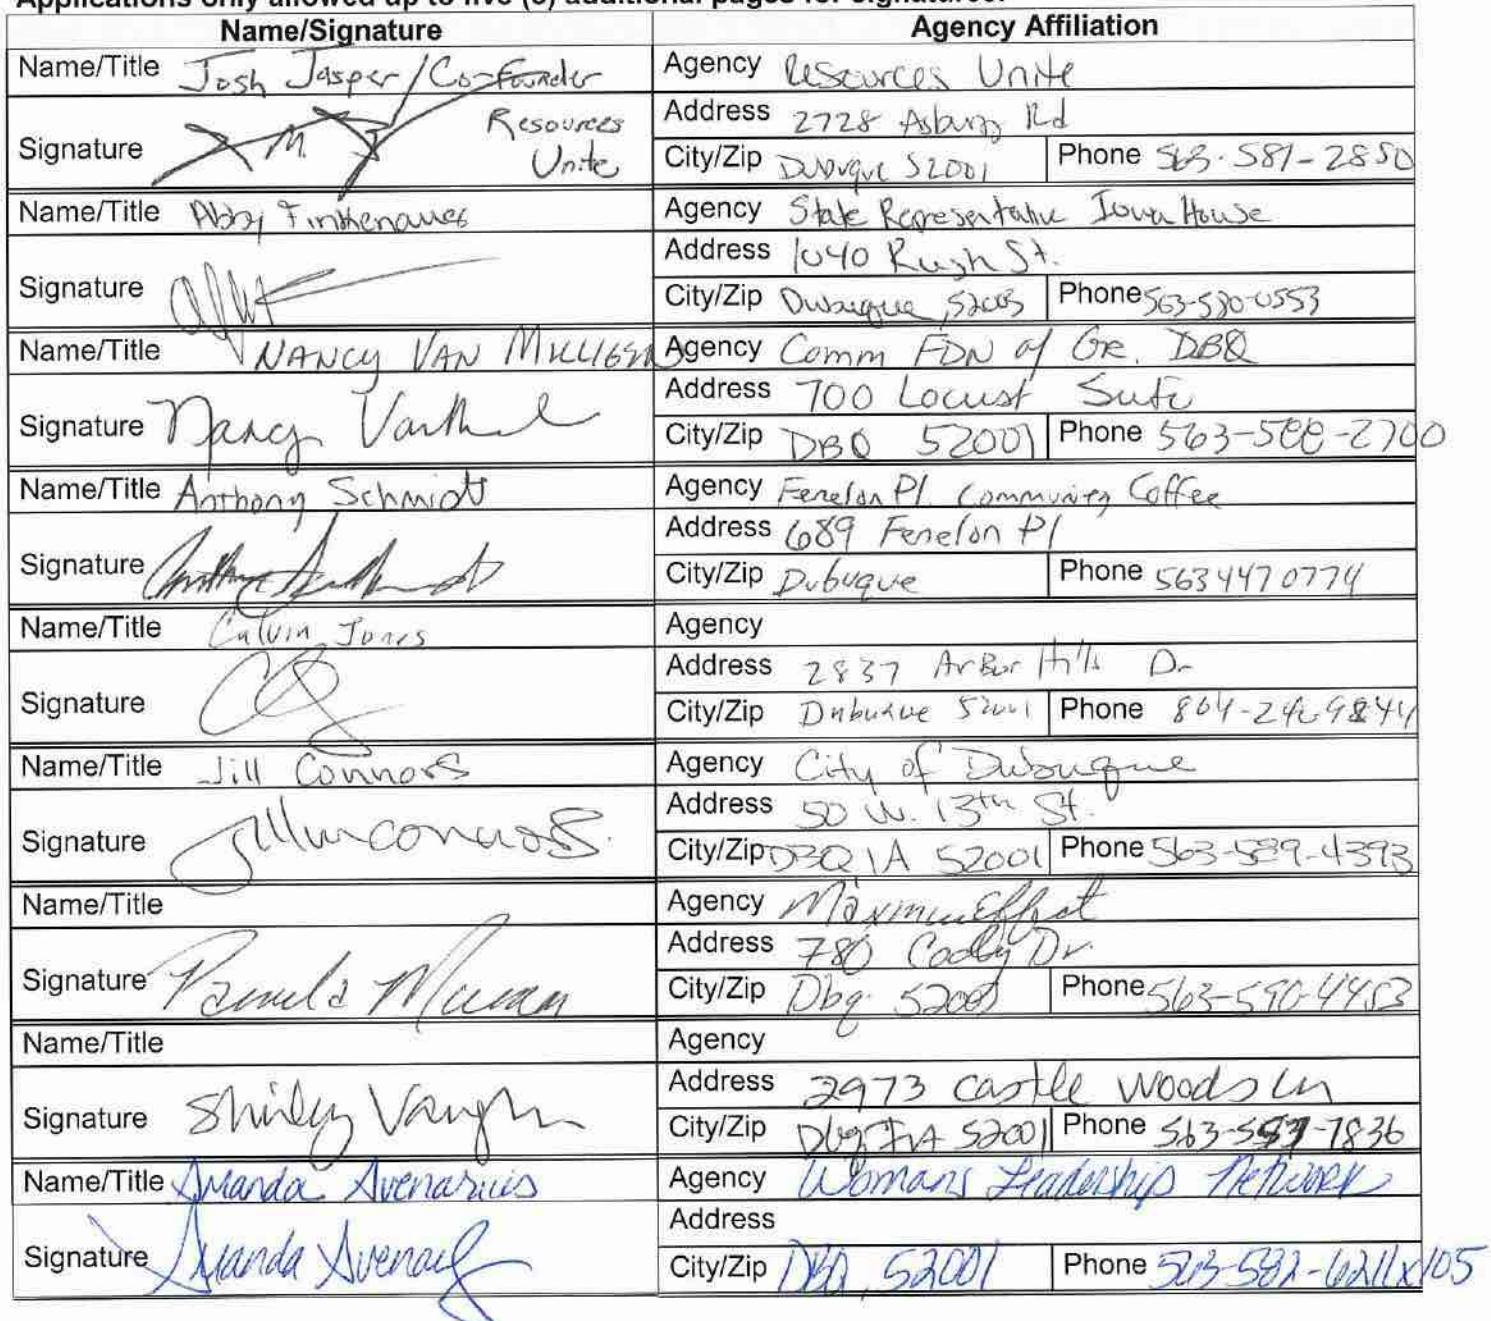 Applications only allowed up to five (5) additional pages for signatures.
Name/Signature Agency Affiliation
Name/Title Josh Jasper/Co-Founder Agency Resources Unite
Signature Resources Unite Address 2728 Asbury Rd
City/Zip Dubuque 52001 Phone 563-581-2850
Name/Title Abby Finkenauer Agency State Representative Iowa House
Signature Address 1040 Rush St.
City/Zip Dubuque, 52003 Phone 563-580-0553
Name/Title NANCY VAN MILLIGEN Agency Comm FDN of Gr. DBQ
Signature Address 700 Locust Suite
City/Zip DBQ 52001 Phone 563-588-2700
Name/Title Anthony Schmidt Agency Fenelon Pl Community Coffee
Signature Address 689 Fenelon Pl
City/Zip Dubuque Phone 563 447 0774
Name/Title Calvin Jones Agency
Signature Address 2837 ArBor Hills Dr
City/Zip Dubuque 52001 Phone
Name/Title Jill Connors Agency City of Dubuque
Signature Address 50 W. 13th St.
City/Zip DBQ IA 52001 Phone 563-589-4393
Name/Title Agency
Signature Pamela Address 780 Dr.
City/Zip Dbq. Phone 563-590-4453
Name/Title Agency
Signature Shirley Vaughn Address 2973 Castle Woods Ln
City/Zip Dbq IA 52001 Phone
Name/Title Amanda Avenarius Agency Womans Leadership Network
Signature Amanda Address
City/Zip DBQ, 52001 Phone 563-582-6211x105